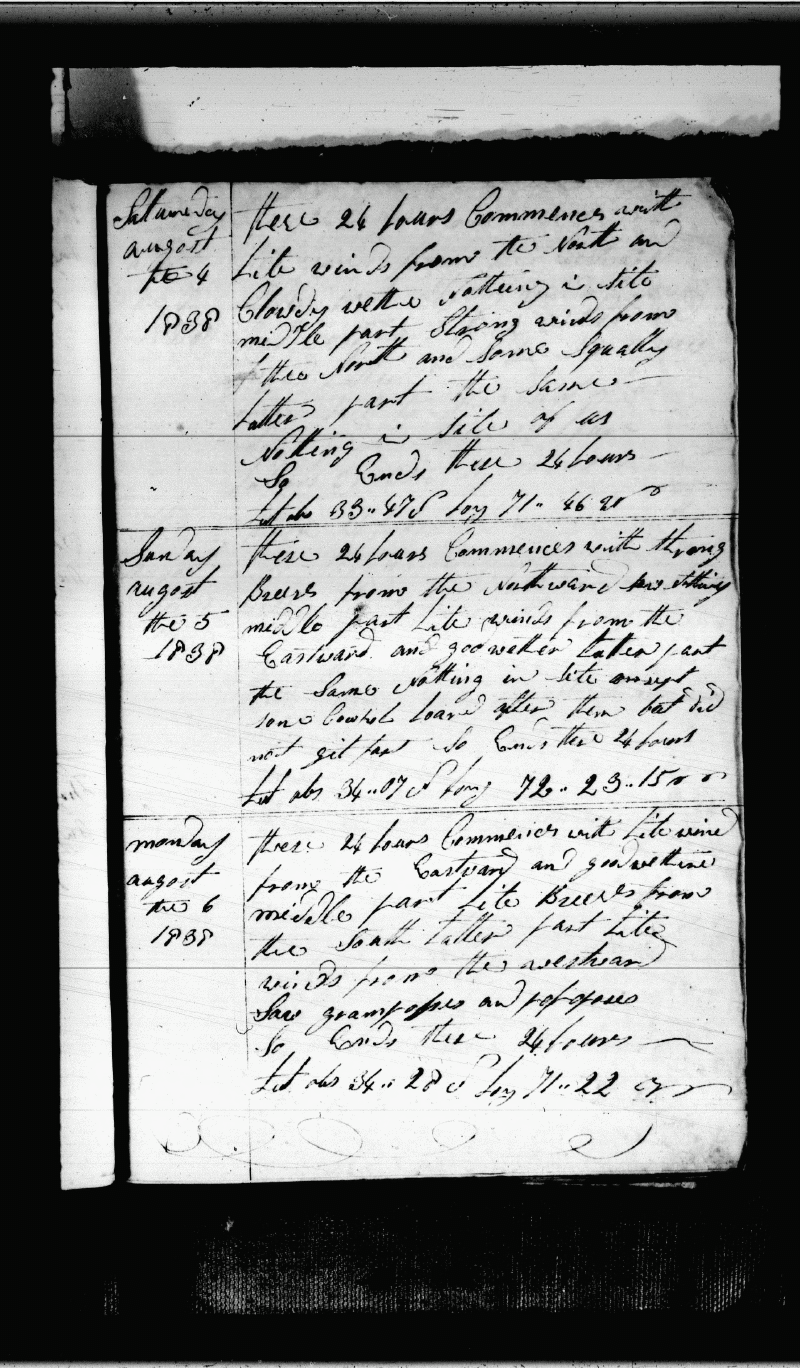 Satturday
august
the 4
1838
these 24 hours Commences with
Lite winds from the North and
Clowdy wether Nothing in Site
middle part Strong winds from
the North and Some Squally
Latter part the Same
Nothing in Site of us
So Ends these 24 hours
Lat obs 33.. 47 S Long 71.. 46
Sunday
august
the 5
1838
these 24 hours Commences with strong
Breeses from the Northward
middle part Lite winds from the
Eastward and good wether Latter part
the Same Nothing in Site
some loard after them but did
not git fast So Ends these 24 hours
Lat obs 34.. 07 S Long 72.. 23.. 15
monday
august
the 6
1838
these 24 hours Commences with Lite wind
from the Eastward and good wether
middle part Lite Breeses from
the South Latter part Lite
winds from the westward
Saw gramposes and popoyses
So Ends these 24 hours
Lat obs 34.. 28 S Long 71.. 22